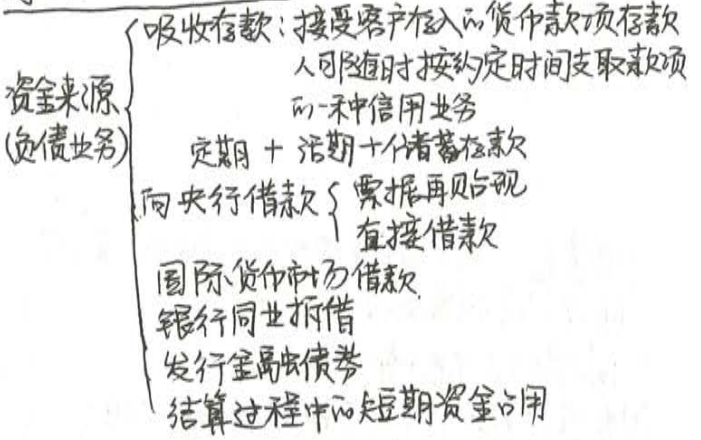 吸收存款：接受客户存入的货币款项存款
人可随时按约定时间支取款项
的一种信用业务
资金来源
(负债业务)
定期 + 活期 + 储蓄存款
向央行借款 { 票据再贴现
直接借款
国际货币市场借款
银行同业拆借
发行金融债券
结算过程中的短期资金占用